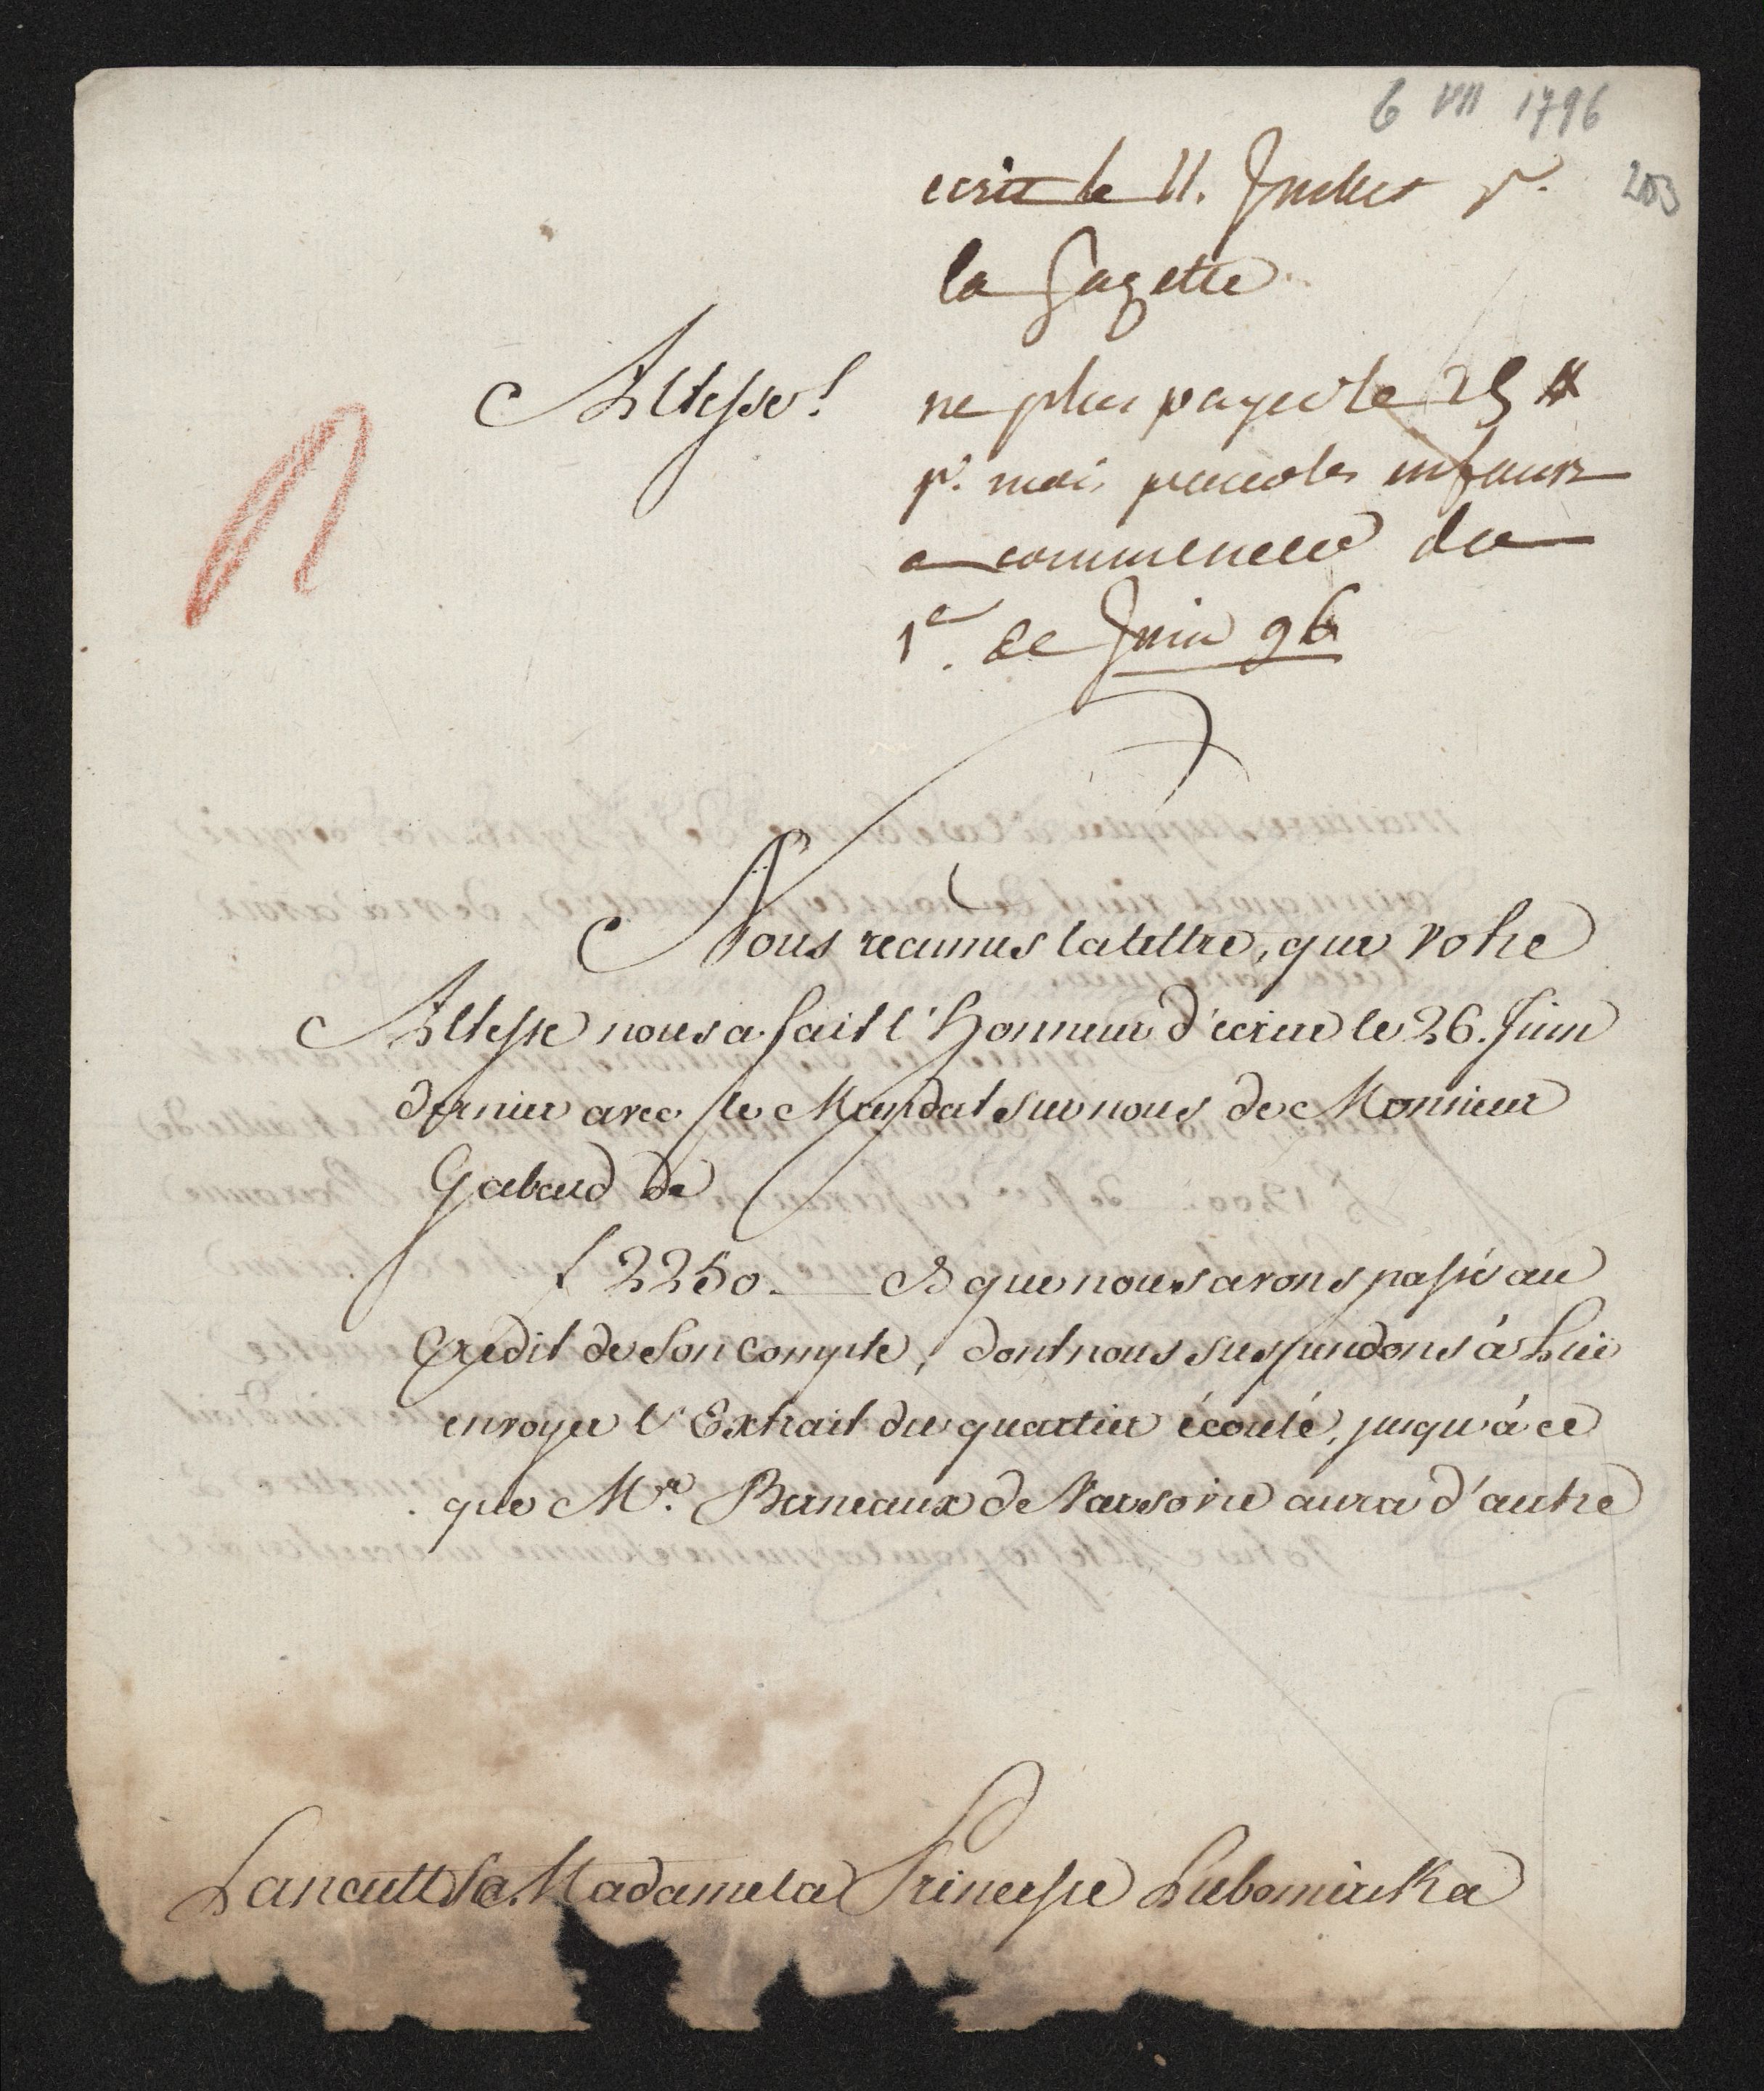 6 VII 1796
203
ecrit le 11. Juillet pr.
la gazette
ne plus payer le 25 #
pr. mois pour les enfans
a commencer du
1er. de Juin 96
Altesse!
Nous reçumes la lettre, que Votre
Altesse nous a fait l'Honneur d'ecrire le 26. Juin
dernier avec le Mandat sur nous de Monsieur
Gabaud de
f 2250. — Et que nous avons passé au
Credit de Son Compte, dont nous suspendons à Lui
envoyer l'Extrait du quartier écoulé, jusqu'à ce
que Mr. Barneaux de Varsovie aura d'autre
Lancutt Sa. Madame la Princesse Lubomirska